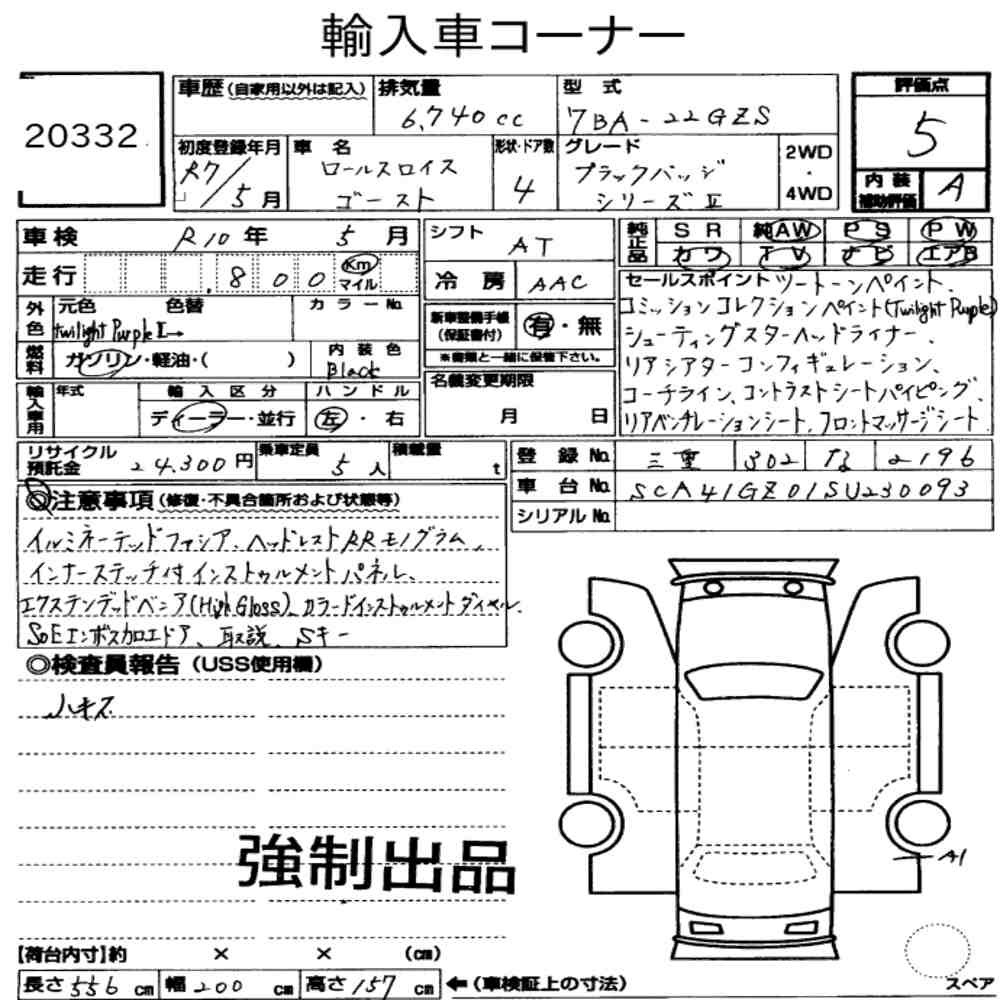 輸入車コーナー
20332
車歴(自家用以外は記入) 排気量 6,740cc 型式 7BA-22GZS 評価点 5
初度登録年月 R7/5月 車名 ロールスロイス ゴースト 形状・ドア数 4 グレード ブラックバッジ シリーズⅡ 2WD・4WD 内装補助評価 A
車検 R10年 5月 シフト AT 純正品 SR 純AW PS PW
カワ TV ナビ エアB
走行 800 Km マイル 冷房 AAC
外色 元色 色替 カラーNo.
twilight Purple Ⅱ→
燃料 ガソリン・軽油・( ) 内装色 Black
新車整備手帳(保証書付) 有・無
※書類と一緒に保管下さい。
輸入車用 年式 輸入区分 ディーラー・並行 ハンドル 左・右
名義変更期限 月 日
セールスポイント ツートーンペイント、
コミッションコレクションペイント(Twilight Purple)
シューティングスターヘッドライナー
リアシアターコンフィギュレーション、
コーチライン、コントラストシートパイピング、
リアベンチレーションシート、フロントマッサージシート
リサイクル預託金 24,300円 乗車定員 5人 積載量 t
登録No. 三重 302 な 2196
車台No. SCA41GZ01SU230093
シリアルNo.
◎注意事項(修復・不具合箇所および状態等)
イルミネーテッドファシア、ヘッドレストRRモノグラム、
インナーステッチ付インストゥルメントパネル、
エクステンデッドベニア(High Gloss)、カラードインストゥルメントダイヤル、
SoEエンボスカロエドア、取説、Sキー
◎検査員報告(USS使用欄)
小キズ
強制出品
A1
【荷台内寸】約 × × (cm)
長さ556cm 幅200cm 高さ157cm ←(車検証上の寸法)
スペア